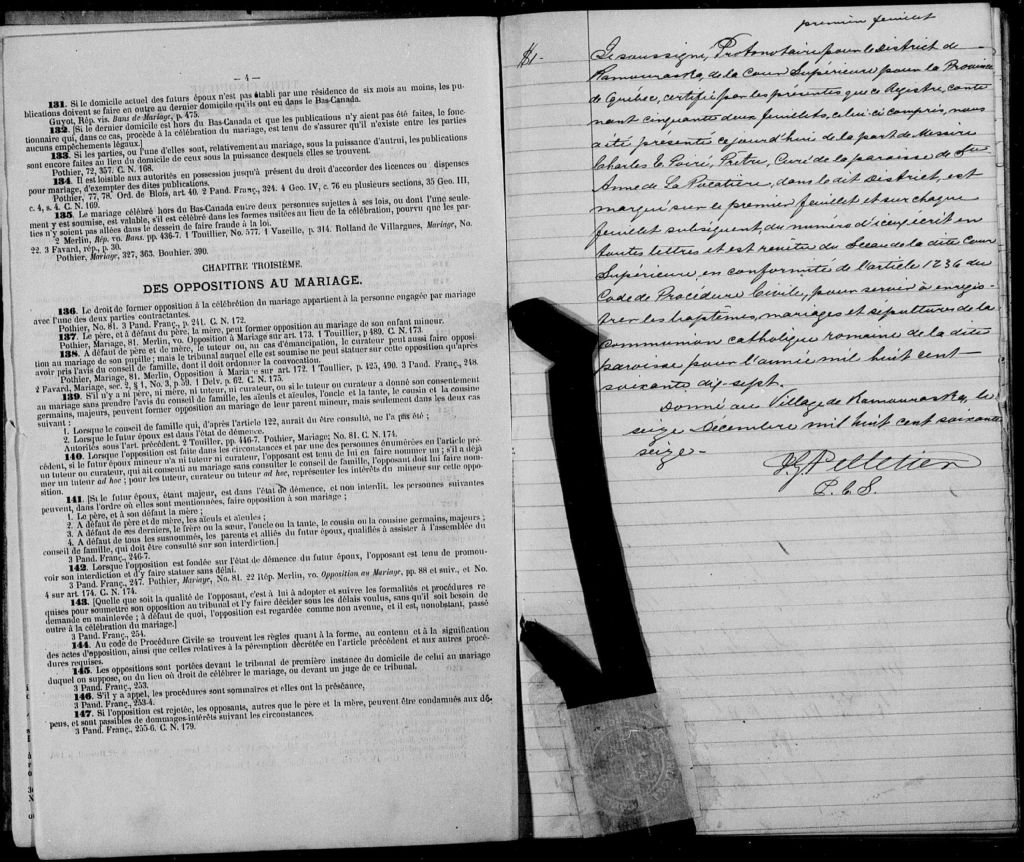 — 4 —
131. Si le domicile actuel des futurs époux n'est pas établi par une résidence de six mois au moins, les pu-
blications doivent se faire en outre au dernier domicile qu'ils ont eu dans le Bas-Canada.
Guyot, Rép. vis. Bans de Mariage, p. 475.
132. [Si le dernier domicile est hors du Bas-Canada et que les publications n'y aient pas été faites, le fonc-
tionnaire qui, dans ce cas, procède à la célébration du mariage, est tenu de s'assurer qu'il n'existe entre les parties
aucuns empêchements légaux.]
133. Si les parties, ou l'une d'elles sont, relativement au mariage, sous la puissance d'autrui, les publications
sont encore faites au lieu du domicile de ceux sous la puissance desquels elles se trouvent.
Pothier, 72, 357. C. N. 168.
134. Il est loisible aux autorités en possession jusqu'à présent du droit d'accorder des licences ou dispenses
pour mariage, d'exempter des dites publications.
Pothier, 77, 78. Ord. de Blois, art. 40. 2 Pand. Franç., 324. 4 Geo. IV, c. 76 en plusieurs sections, 35 Geo. III,
c. 4, s. 4. C. N. 169.
135. Le mariage célébré hors du Bas-Canada entre deux personnes sujettes à ses lois, ou dont l'une seule-
ment y est soumise, est valable, s'il est célébré dans les formes usitées au lieu de la célébration, pourvu que les par-
ties n'y soient pas allées dans le dessein de faire fraude à la loi.
2 Merlin, Rép. vo. Bans. pp. 436-7. 1 Touillier, No. 577. 1 Vazeille, p. 314. Rolland de Villargues, Mariage, No.
22. 3 Favard, rép., p. 30.
Pothier, Mariage, 327, 363. Bouhier. 390.
CHAPITRE TROISIÈME.
DES OPPOSITIONS AU MARIAGE.
136. Le droit de former opposition à la célébrétion du mariage appartient à la personne engagée par mariage
avec l'une des deux parties contractantes.
Pothier, No. 81. 3 Pand. Franç., p. 241. C. N. 172.
137. Le père, et à défaut du père, la mère, peut former opposition au mariage de son enfant mineur.
Pothier, Mariage, 81. Merlin, vo. Opposition à Mariage sur art. 173. 1 Touillier, p 489. C. N. 173.
138. A défaut de père et de mère, le tuteur ou, au cas d'émancipation, le curateur peut aussi faire opposi-
tion au mariage de son pupille; mais le tribunal auquel elle est soumise ne peut statuer sur cette opposition qu'après
avoir pris l'avis du conseil de famille, dont il doit ordonner la convocation.
Pothier, Mariage, 81. Merlin, Opposition à Maria e sur art. 172. 1 Touillier, p. 425, 490. 3 Pand. Franç., 248.
2 Favard, Mariage, sec. 2, § 1, No. 3, p. 59. 1 Delv. p. 62. C. N. 175.
139. S'il n'y a ni père, ni mère, ni tuteur, ni curateur, ou si le tuteur ou curateur a donné son consentement
au mariage sans prendre l'avis du conseil de famille, les aïeuls et aïeules, l'oncle et la tante, le cousin et la cousine
germains, majeurs, peuvent former opposition au mariage de leur parent mineur, mais seulement dans les deux cas
suivant :
1. Lorsque le conseil de famille qui, d'après l'article 122, aurait du être consulté, ne l'a pas été ;
2. Lorsque le futur époux est dans l'état de démence.
Autorités sous l'art. précédent. 2 Touiller, pp. 446-7. Pothier, Mariage; No. 81. C. N. 174.
140. Lorsque l'opposition est faite dans les circonstances et par une des personnes énumérées en l'article pré-
cédent, si le futur époux mineur n'a ni tuteur ni curateur, l'opposant est tenu de lui en faire nommer un ; s'il a déjà
un tuteur ou curateur, qui ait consenti au mariage sans consulter le conseil de famille, l'opposant doit lui faire nom-
mer un tuteur ad hoc ; pour les tuteur, curateur ou tuteur ad hoc, représenter les intérêts du mineur sur cette oppo-
sition.
141. [Si le futur époux, étant majeur, est dans l'état de démence, et non interdit, les personnes suivantes
peuvent, dans l'ordre où elles sont mentionnées, faire opposition à son mariage ;
1. Le père, et à son défaut la mère ;
2. A défaut de père et de mère, les aïeuls et aïeules ;
3. A défaut de ces derniers, le frère ou la sœur, l'oncle ou la tante, le cousin ou la cousine germains, majeurs ;
4. A défaut de tous les susnommés, les parents et alliés du futur époux, qualifiés à assister à l'assemblée du
conseil de famille, qui doit être consulté sur son interdiction.]
3 Pand. Franç., 246-7.
142. Lorsque l'opposition est fondée sur l'état de démence du futur époux, l'opposant est tenu de promou-
voir son interdiction et d'y faire statuer sans délai.
3 Pand. Franç., 247. Pothier, Mariage, No. 81. 22 Rép. Merlin, vo. Opposition au Mariage, pp. 88 et suiv., et No.
4 sur art. 174. C. N. 174.
143. [Quelque que soit la qualité de l'opposant, c'est à lui à adopter et suivre les formalités et procédures re
quises pour soumettre son opposition au tribunal et l'y faire décider sous les délais voulus, sans qu'il soit besoin de
demande en mainlevée ; à défaut de quoi, l'opposition est regardée comme non avenue, et il est, nonobstant, passé
outre à la célébration du mariage.]
3 Pand. Franç., 254.
144. Au code de Procédure Civile se trouvent les règles quant à la forme, au contenu et à la signification
des actes d'opposition, ainsi que celles relatives à la péremption décrétée en l'article précédent et aux autres procé-
dures requises.
145. Les oppositions sont portées devant le tribunal de première instance du domicile de celui au mariage
duquel on suppose, ou du lieu où on droit de célébrer le mariage, ou devant un juge de ce tribunal.
3 Pand. Franç., 253.
146. S'il y a appel, les procédures sont sommaires et elles ont la préséance,
3 Pand. Franç., 253-4.
147. Si l'opposition est rejetée, les opposants, autres que le père et la mère, peuvent être condamnés aux dé-
pens, et sont passibles de dommages-intérêts suivant les circonstances.
3 Pand. Franç., 255-6. C. N. 179.
premier feuillet
Je soussigné, Protonotaire pour le District de
Kamouraska, de la Cour Supérieure pour la Province
de Québec, certifie par les présentes que ce Registre, conte
nant cinquante deux feuillets, celui-ci compris, nous
a été présenté ce jour d'hui de la part de Messire
Charles E. Poiré, Prêtre, Curé de la paroisse de Ste
Anne de La Pocatière, dans le dit District, est
marqué sur le premier feuillet et sur chaque
feuillet subséquent du numéro d'icèux, écrit en
toutes lettres et est revêtu du Sceau de la dite Cour
Supérieure, en conformité de l'article 1236 du
Code de Procédure Civile, pour servir à enregis-
trer les baptêmes, mariages et sépultures de la
communion catholique romaine de la dite
paroisse pour l'année mil huit cent
soixante dix-sept.
Donné au Village de Kamouraska, le
seize Décembre mil huit cent soixante
seize.-
Pelletier
P. C. S.